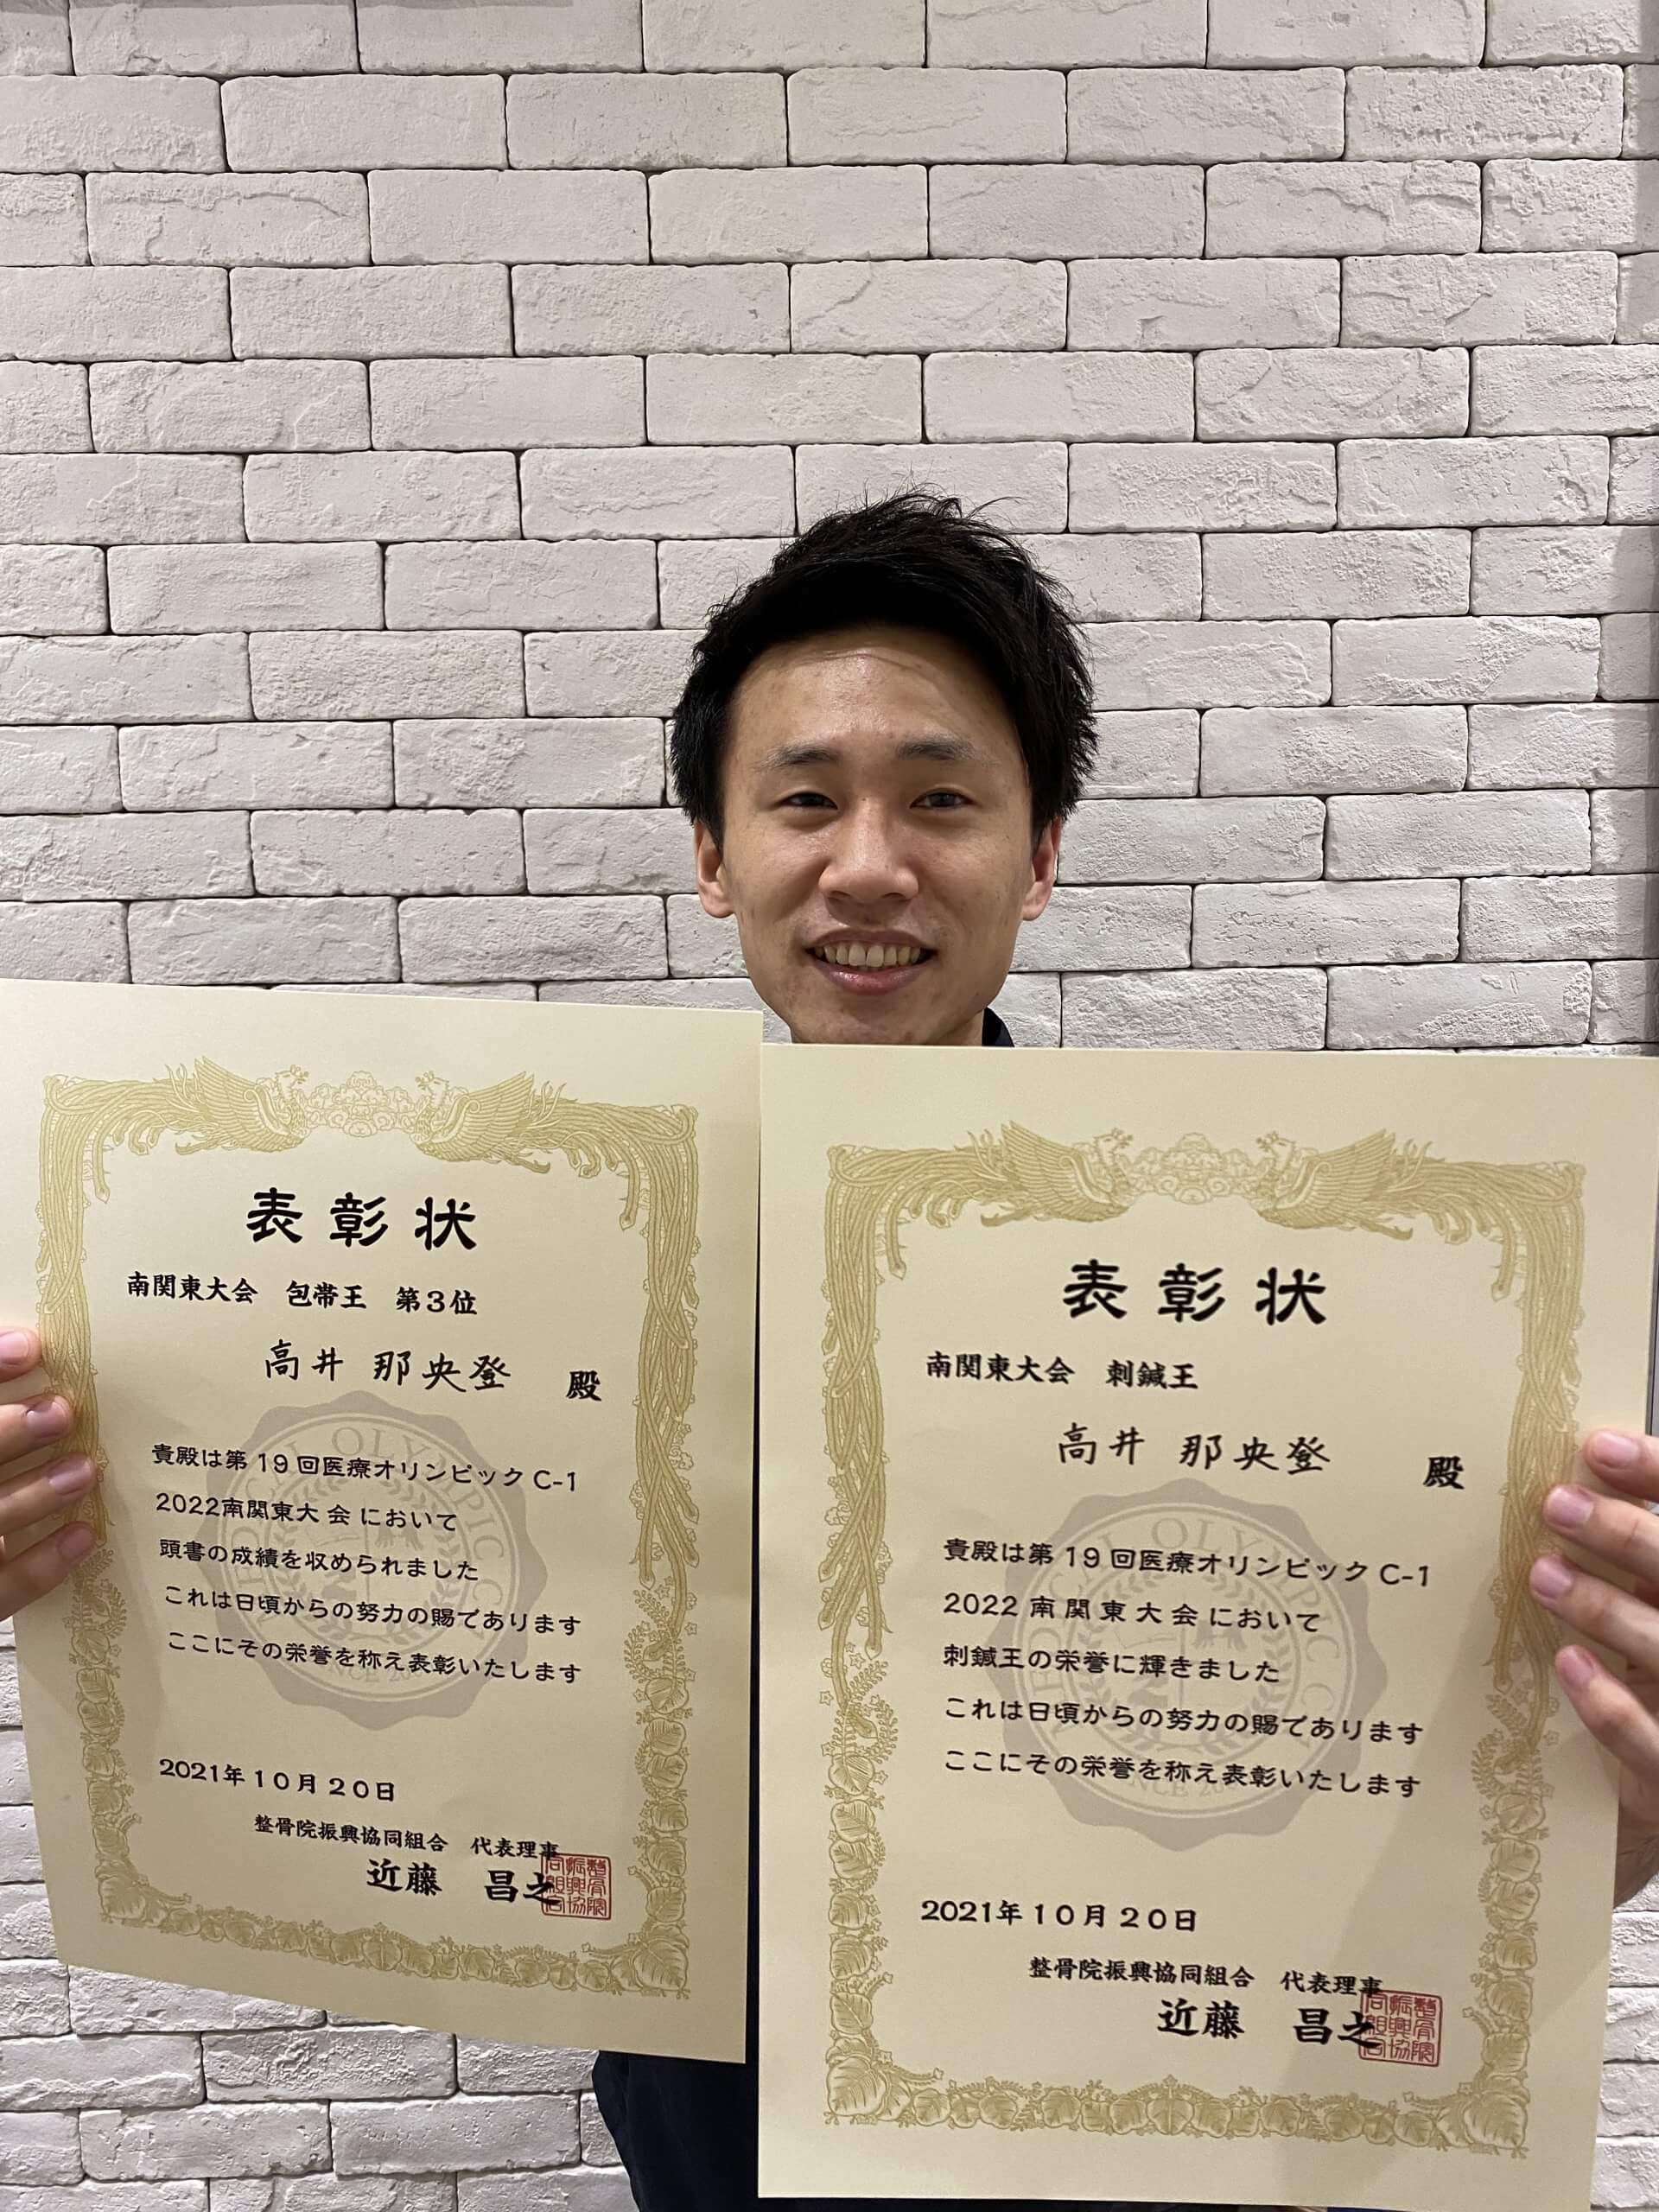 表彰状
南関東大会 包帯王 第3位
高井 那央登 殿
貴殿は第19回医療オリンピックC-1
2022南関東大会において
頭書の成績を収められました
これは日頃からの努力の賜であります
ここにその栄誉を称え表彰いたします
2021年10月20日
整骨院振興協同組合 代表理事
近藤 昌之
表彰状
南関東大会 刺鍼王
高井 那央登 殿
貴殿は第19回医療オリンピックC-1
2022南関東大会において
刺鍼王の栄誉に輝きました
これは日頃からの努力の賜であります
ここにその栄誉を称え表彰いたします
2021年10月20日
整骨院振興協同組合 代表理事
近藤 昌之